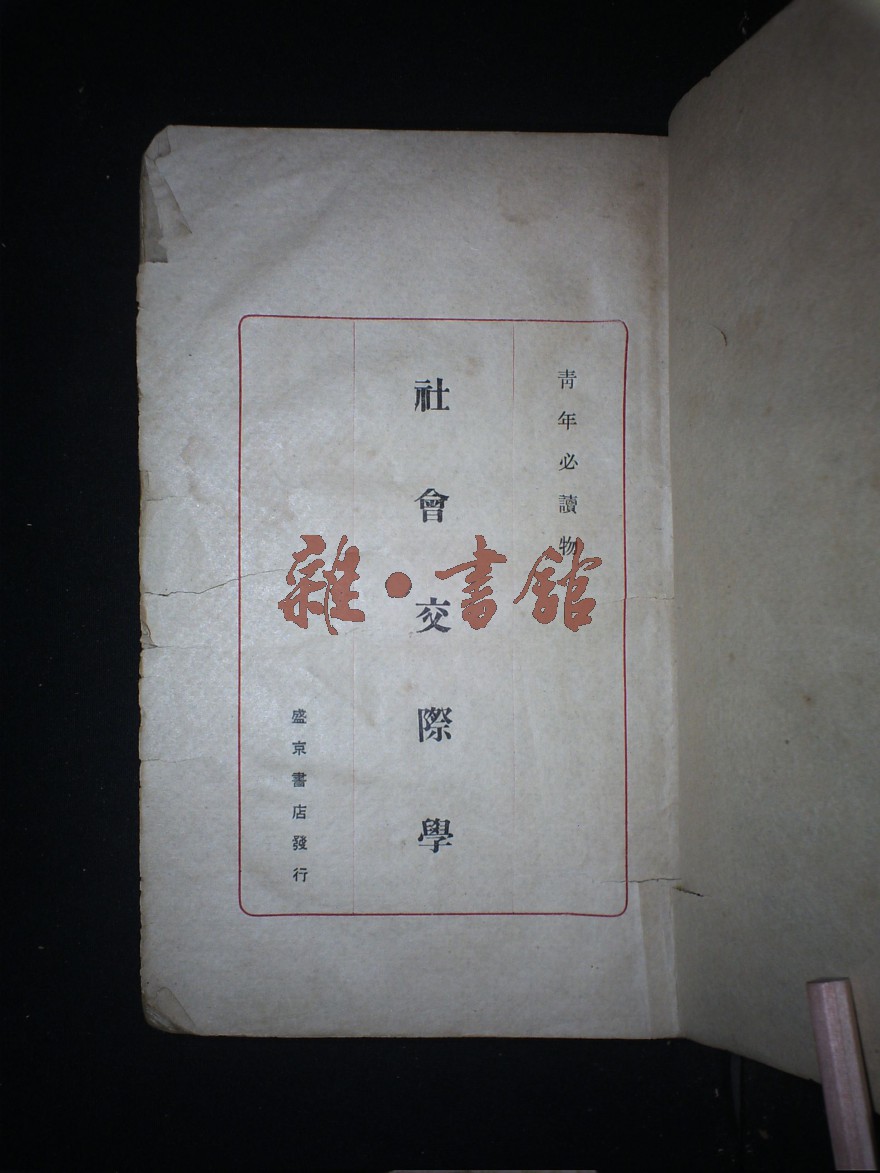 青年必讀物
社會交際學
盛京書店發行
雜·書館